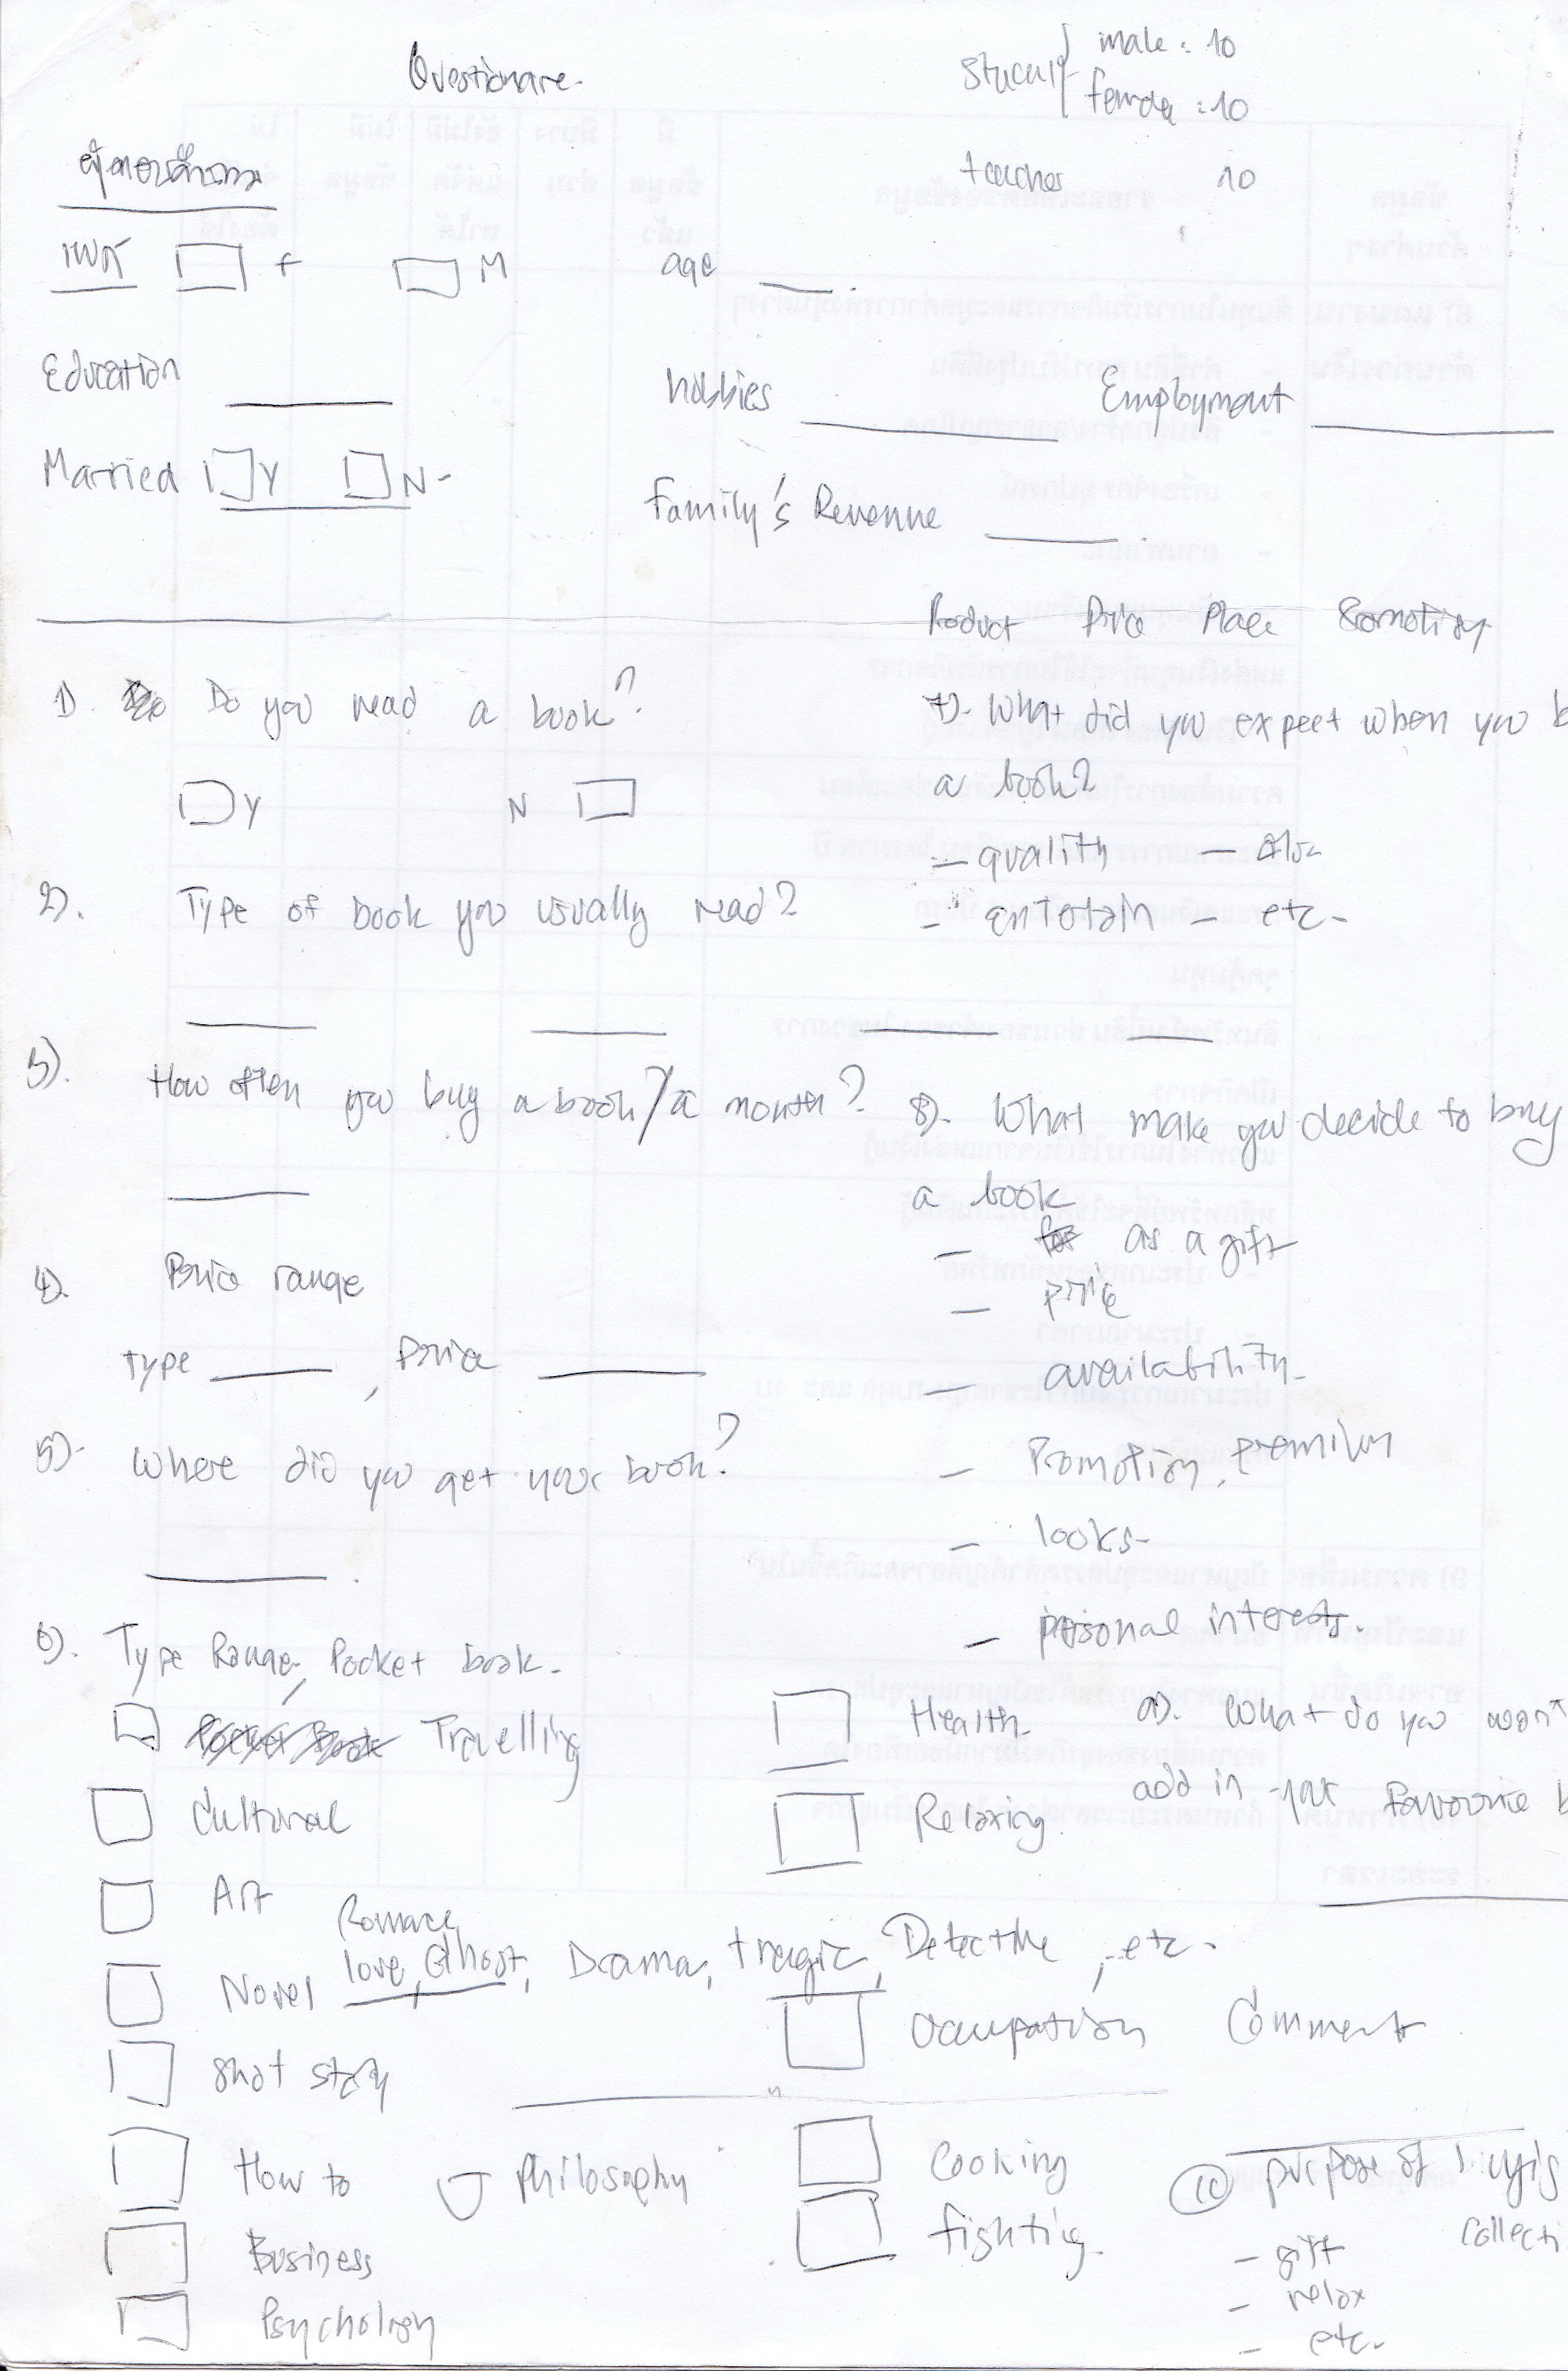 Questionare
male : 10
female : 10
teacher 10
ผู้ตอบคำถาม
เพศ F M age
Education hobbies Employment
Married Y N
Family's Revenue
Product Price Place Promotion
1). Do you read a book?
Y N
2). Type of book you usually read?
3). How often you buy a book / a month?
4). Price range
type , Price
5). Where did you get your book?
6). Type Range, Pocket book.
Pocket Book Travelling
Cultural
Art
Romace,
Novel love, Ghost, Drama, tragic, Detective, etc.
Shot story
How to Philosophy
Business
Psychology
Health
Relaxing.
Occupation
Cooking
fighting.
7). What did you expect when you b
a book?
- quality -
- entertain - etc.
8). What make you decide to buy
a book
- for as a gift
- price
- availability
- Promotion, premium
- looks
- personal interests.
9). What do you want
add in your favourite b
Comment
10 purpose of buyig
- gift collecti
- relax
- etc.